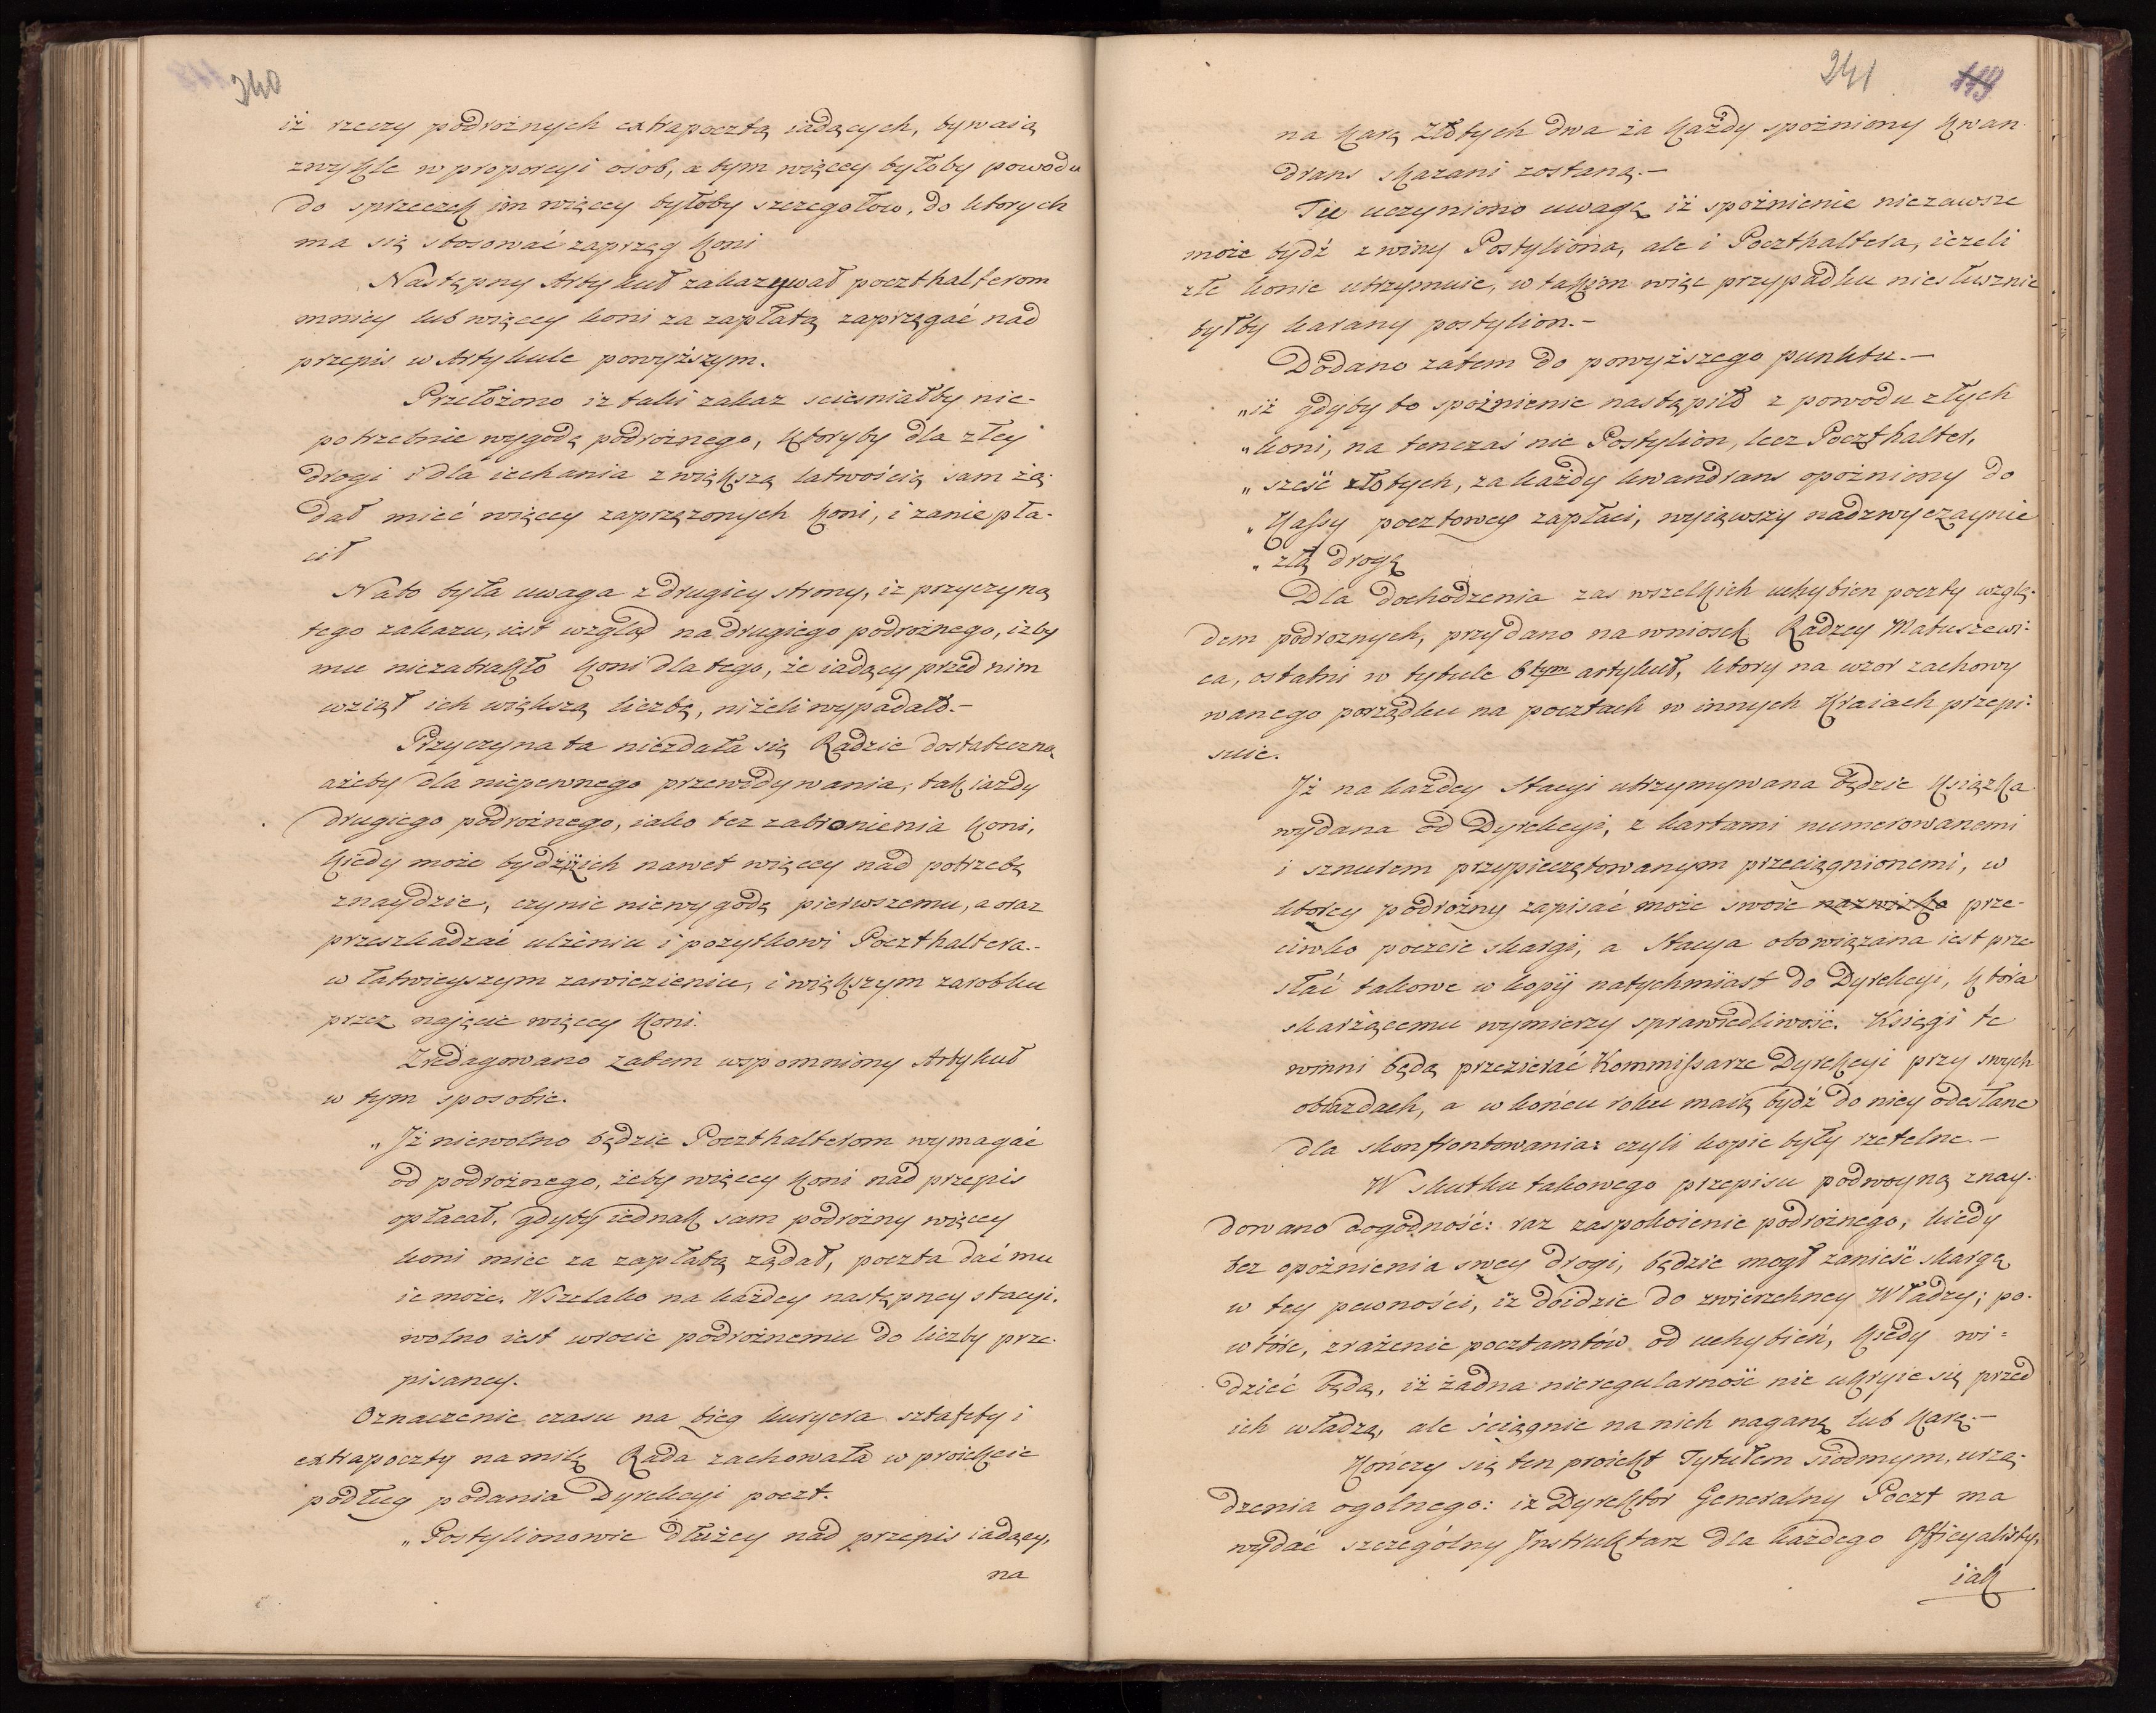 240
iż rzeczy podrożnych extrapocztą iadących, bywaią
zwykle w proporcyi osob, a tym więcey byłoby powodu
do sprzeczek im więcey byłoby szczegołow, do ktorych
ma się stosować zaprzęg koni
Następny Artykuł zakazywał poczthalterom
mniey lub więcey koni za zapłatą zaprzęgać nad
przepis w Artykule powyższym.
Przełożono iz taki zakaz scieśniałby nie-
potrzebnie wygodę podrożnego, ktoryby dla złey
drogi i dla iechania z większą łatwością sam żą-
dał mieć więcey zaprzężonych koni, i zanie pła-
cił
Nato była uwaga z drugiey strony, iz przyczyną
tego zakazu, iest wzgląd na drugiego podrożnego, iżby
mu niezabrakło koni dla tego, że iadący przed nim
wziął ich większą liczbę, niżeli wypadało.-
Przyczyna ta niezdała się Radzie dostateczną
ażeby dla niepewnego przewidywania, tak iazdy
drugiego podrożnego, iako też zabronienia koni,
kiedy może bydź iż ich nawet więcey nad potrzebę
znaydzie, czynic niewygodę pierwszemu, a oraz
przeszkadzać ulżeniu i pozytkowi Poczthaltera.-
w łatwieyszym zawiezieniu, i większym zarobku
przez najęcie więcey koni.
Zredagowano zatem wspomniony Artykuł
w tym sposobie.
„Iż niewolno będzie Poczthalterom wymagać
od podrożnego, żeby więcey koni nad przepis
opłacał, gdyby iednak sam podrożny więcey
koni miec za zapłatą żądał, poczta dać mu
ie może. Wszelako na każdey następney stacyi.
wolno iest wrocic podrożnemu do liczby prze-
pisaney.
Oznaczenie czasu na bieg kuryera sztafety i
extrapoczty na milę Rada zachowała w proiekcie
podług podania Dyrekcyi poczt.
„Postylionowie dłużey nad przepis iadący,
na
241 119
na karę złotych dwa za każdy spożniony kwan
drans skazani zostaną.-
Tu uczyniono uwagę iż spożnienie niezawsze
może bydź z winy Postyliona, ale i Poczthaltera, ieżeli
złe konie utrzymuie, w takim więc przypadku niesłusznie
byłby karany postylion.-
Dodano zatem do powyższego punktu.-
„iż gdyby to spożnienie nastąpiło z powodu złych
„koni, na tenczaś nie Postylion, lecz Poczthalter,
„sześć złotych, za każdy kwandrans opożniony do
„Kassy pocztowey zapłaci, wyiąwszy nadzwyczaynie
„złą drogę
Dla dochodzenia zas wszelkich uchybien poczty wzglę-
dem podroznych, przydano na wniosek Radzcy Matuszewi-
ca, ostatni w tytule 6tym artykuł, ktory na wzor zachowy
wanego porządku na pocztach w innych Kraiach przepi-
suie.
Iż na każdey Stacyi utrzymywana będzie Książka
wydana od Dyrekcyi, z kartami numerowanemi
i sznurem przypieczętowanym przeciągnionemi, w
ktorey podrożny zapisać może swoie nazwisko prze-
ciwko poczcie skargi, a Stacya obowiązana iest prze-
słać takowe w kopij natychmiast do Dyrekcyi, która
skarżącemu wymierzy sprawiedliwość. Księgi te
winni będą przezierać Kommissarze Dyrekcyi przy swych
obiazdach, a w końcu roku maią bydź do niey odesłane
dla skonfrontowania: czyli kopie były rzetelne.-
W skutku takowego przepisu podwoyną znay-
dowano dogodność: raz zaspokoienie podrożnego, kiedy
bez opożnienia swey drogi, będzie mogł zanieść skargę
w tey pewności, iż doidzie do zwierzchney Władzy; po-
wtóre, zrażenie pocztamtów od uchybień, kiedy wi-
dzieć będą, iż żadna nieregularność nie ukryie się przed
ich władzą, ale ściągnie na nich naganę lub karę.-
Kończy się ten proiekt Tytułem siodmym, urzą-
dzenia ogolnego: iz Dyrektor Generalny Poczt ma
wydać szczególny Instruktarz dla każdego Officyalisty,
iak